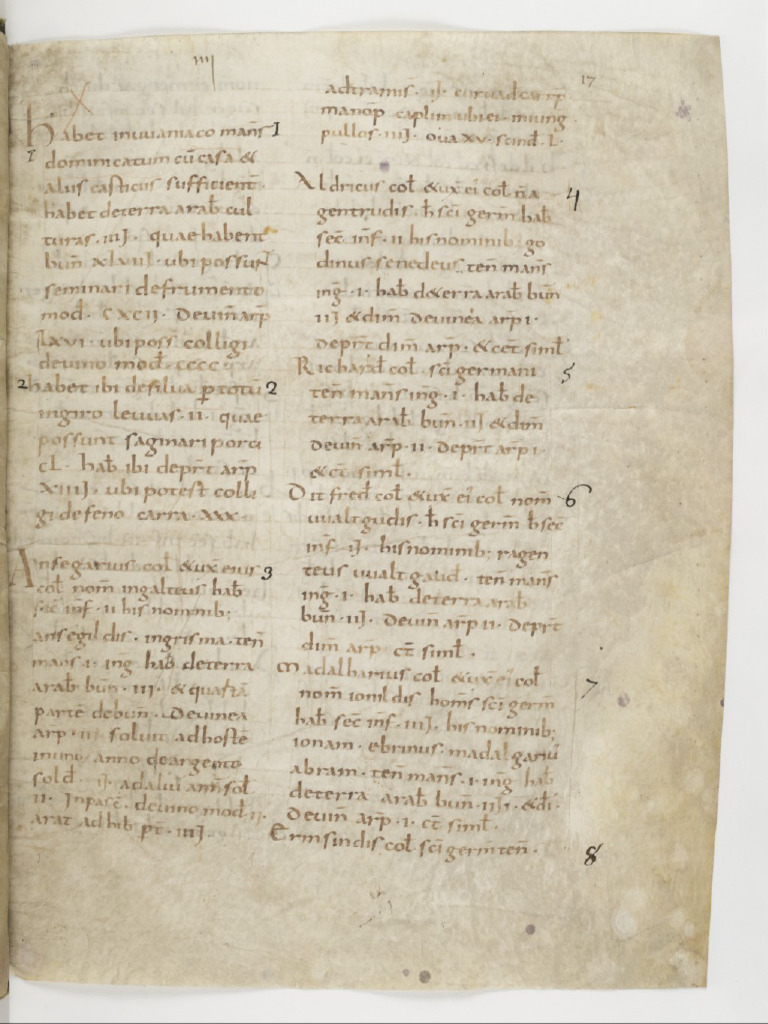 IIII
17
Habet inuuaniaco mans̄ I
1 dominicatum cū casa &
aliis casticiis sufficient̄
habet deterra arab̄ cul
turas · IIIJ · quae habent
bun̄ XLVII · ubi possunt
seminari defrumento
mod̄ · CXCII · Deuin̄ arp̄
LXVI · ubi poss̄ colligi
deuino mod̄ · CCCC
2 habet ibi desilua ꝑ totū 2
ingiro leuuas · II · quae
possunt saginari porci
CL · hab̄ ibi deprt̄ arp̄
XIIIJ · ubi potest colli
gi defeno carra · XXX ·
Ansegarius col̄ &ux̄ eius 3
col̄ nom̄ ingalteus hab̄
sec̄ inf̄ · II his nominib;
ansegildis · ingrisma · ten̄
mans̄ · I · inḡ hab̄ deterra
arab̄ bun̄ · III · & quartā
partē debun̄ · Deuinea
arp̄ · II · soluit ad hostē
inuno anno deargento
sol̄d · IJ · ad aliū ann̄ sol̄
II · Inpasc̄ · deuino mod̄ II ·
arat ad hib̄ pt̄ · IIIJ
ad tramis̄ · IJ · curuad carr̄
manop̄ caplim̄ ubi ei iniunḡ
pullos · IIIJ · oua XV · scind̄ · L ·
Aldricus col̄ &ux̄ ei col̄ n̄a 4
gentrudis · h̄ sc̄i germ̄ hab̄
sec̄ inf̄ · II his nominib; go
dinus senedeus · ten̄ mans̄
inḡ · I · hab̄ deterra arab̄ bun̄
IIJ & dim̄ deuinea arp̄ I ·
deprt̄ dim̄ arp̄ · & cet̄ simil̄
Richard̄ col̄ · sc̄i germani 5
ten̄ mans̄ inḡ · I · hab̄ de
terra arab̄ bun̄ · IIJ & dim̄
deuin̄ arp̄ · II · deprt̄ arp̄ I ·
& ct̄ simil̄ ·
Ditfred̄ col̄ &ux̄ ei col̄ nom̄ 6
uualtgudis · h̄ sc̄i germ̄ h̄ sec̄
inf̄ · IJ · his nominib; ragen
teus uualtgaud · ten̄ mans̄
inḡ · I · hab̄ deterra arab̄
bun̄ · IIJ · Deuin̄ arp̄ II · Deprt̄
dim̄ arp̄ ct̄ simil̄ ·
Madalharius col̄ &ux̄ ei col̄ 7
nom̄ ionildis hom̄s sc̄i germ̄
hab̄ sec̄ inf̄ · IIIJ · his nominib;
ionam · ebrinus · madalgariū
abram · ten̄ mans̄ · I · inḡ hab̄
deterra arab̄ bun̄ · IIJ · & di̅ ·
Deuin̄ arp̄ · I · ct̄ simil̄ ·
Ermsindis col̄ sc̄i germ̄ ten̄ · 8